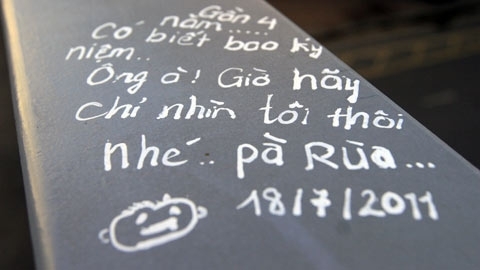 Gần 4
Có năm.....
biết bao kỷ
niệm..
Ông à! Giờ hãy
chỉ nhìn tôi thôi
nhé.. pà Rùa...
18/7/2011